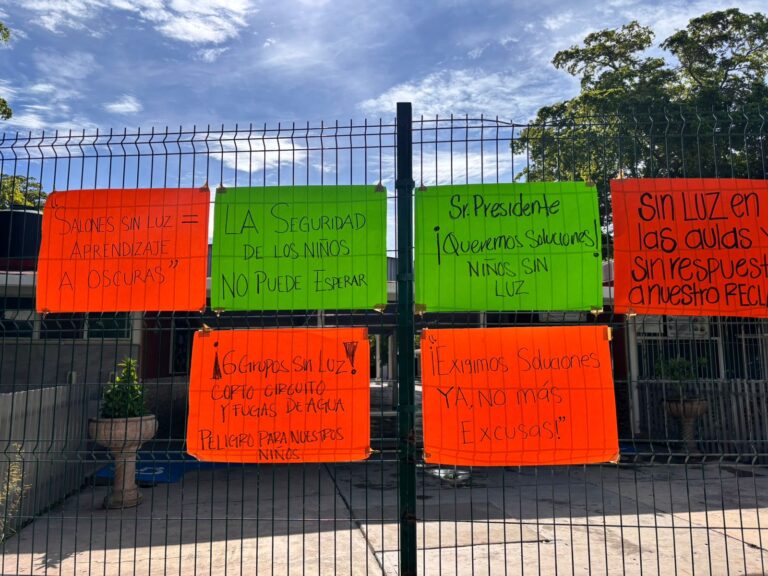 "SALONES SIN LUZ =
APRENDIZAJE
A OSCURAS"
LA SEGURIDAD
DE LOS NIÑOS
NO PUEDE ESPERAR
Sr. Presidente
¡Queremos Soluciones!
NIÑOS SIN
LUZ
SIN LUZ en
las aulas y
sin respuest
a nuestro RECL
¡6 Grupos Sin Luz!
CORTO CIRCUITO
Y FUGAS DE AGUA
PELIGRO PARA NUESTROS
NIÑOS
"¡Exigimos Soluciones
YA, No más
Excusas!"